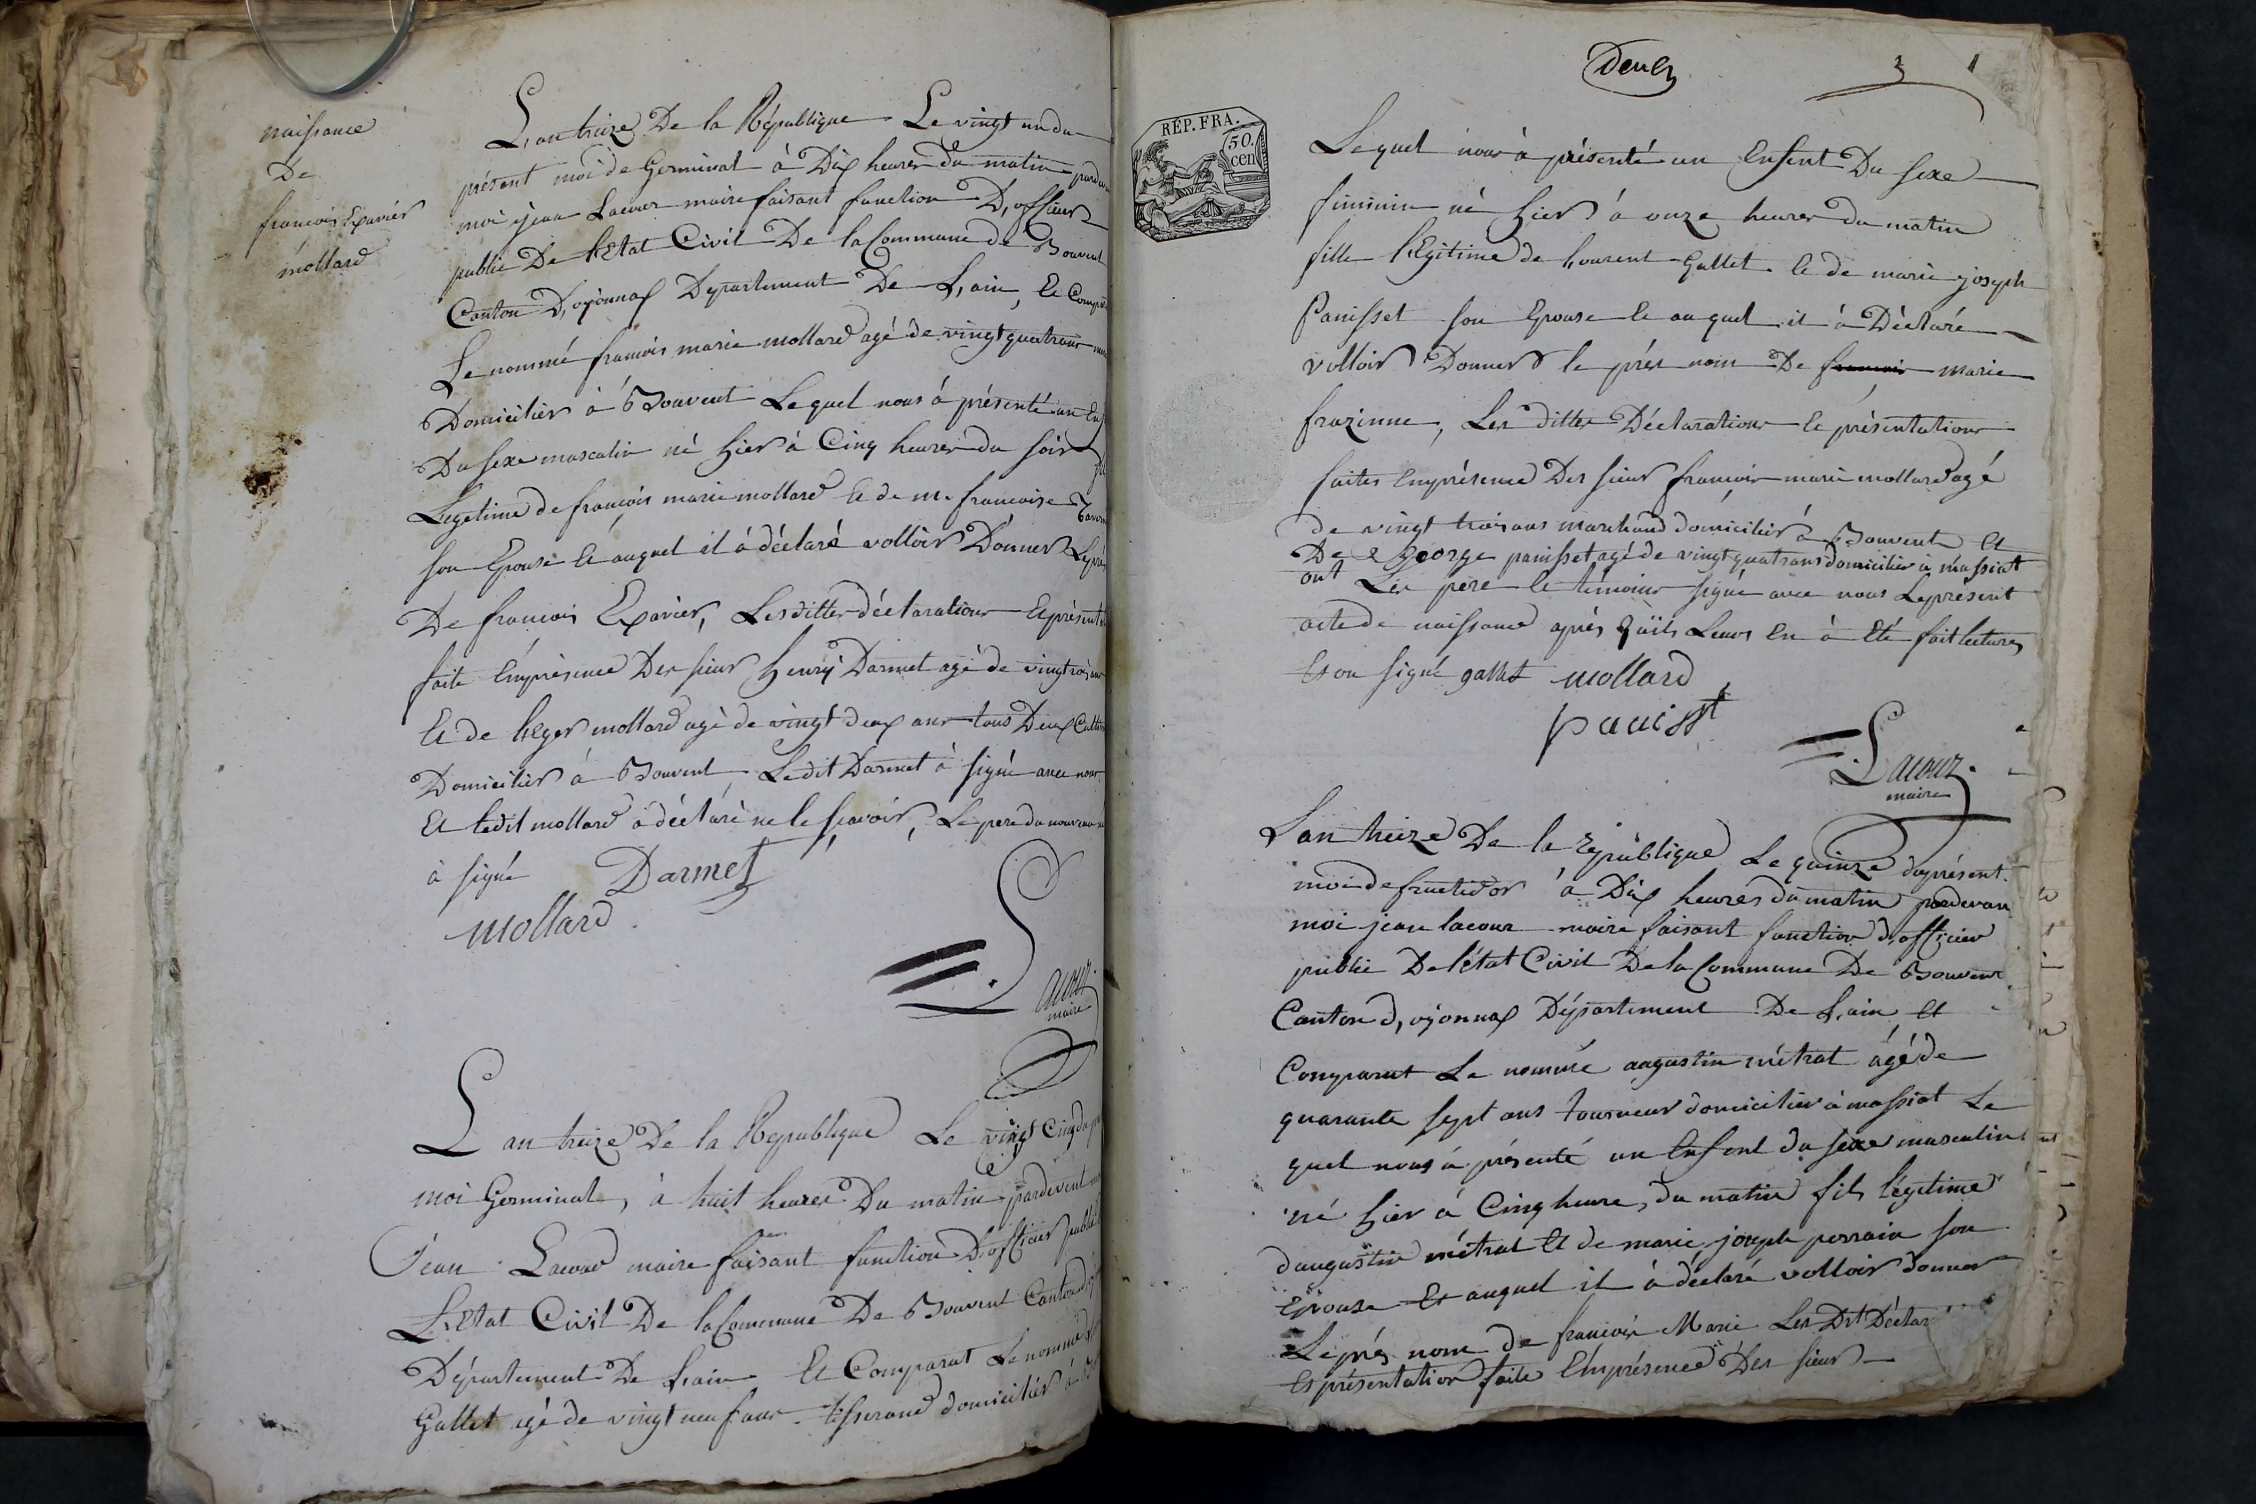 naissance
De
francois Exavier
mollard
L,an treize De la République Le vingt un du
présent moi de Germinal à Dix heures du matin pardev
moi jean Lacour maire faisant fonction D,officier
public De l'Etat Civil De la Commune de Bouvent
Canton D,oyonnax Département De L,ain, Et Compar
Le nommé francois marie mollard agé de vingt quatr ans
Domicilier à Bouvent Lequel nous à présenté un Enf
Du sexe masculin né hier à Cinq heures du soir
Legetime de francois marie mollard Et de m. francoise
son Epouse Et auquel il à déclaré volloir Donner Le prés
De francois Exavier, Les ditte déclaration Et présent
faite Emprésence Des sieur Henrij Darmet agé de vingt trois ans
Et de Leger mollard agé de vingt deux ans tous Deux Cultiv
Domicilier à Bouvent, Ledit Darmet à signé avec nous
Et ledit mollard à déclaré ne le scavoir, Le pere du nouveau n
à signé Darmet
mollard
Lacour
maire
L an treize De la République Le vingt cinq du p
moi Germinal, à huit heures Du matin pardevent
Jean Lacour maire faisant fonction D,officier public
L'Etat Civil De la Commune De Bouvent Canton d
Département De L,ain Et Comparut Le nommé
Gallet agé de vingt neuf ans tisserand domicilier à
Deux
3 1
RÉP. FRA.
50.
cen
Lequel nous à présenté un Enfent Du sexe
feminin né hier à onze heures du matin
fille légitime de Lourent Gallet Et de marie joseph
Panisset son Epouse Et auquel il à Déclaré
volloir Donner le prés nom De francois marie
frazinne, Les ditte Déclaration Et présentation
faites Emprésence Des sieur francois marie mollard agé
de vingt trois ans marchand domicilier à Bouvent Et
De George panisset agé de vingt quatr ans domicilier à massiat
ont Les pere Et témoins signé avec nous Le présent
acte de naissance aprés qu'ils Leurs En à Eté fait lecture
Et on signé gallet mollard
panisset
Lacour
maire
L an treize De la République Le quinze du présent
moi de fructidor à Dix heures du matin pardevan
moi jean lacour maire faisant fonction d,officier
public De l'état Civil De la Commune De Bouvent
Canton d,oyonnax Département De L,ain Et
Comparut Le nommé augustin métral agé de
quarante sept ans tourneur domicilier à massiat Le
quel nous à présenté un Enfent du sexe masculin
né hier à Cinq heure, du matin fils légitime
d'augustin métral Et de marie joseph perrain son
Epouse Et auquel il à déclaré volloir donner
Le prés nom de francois Marie Les Dit Déclar
Et présentation faite Emprésence Des sieur